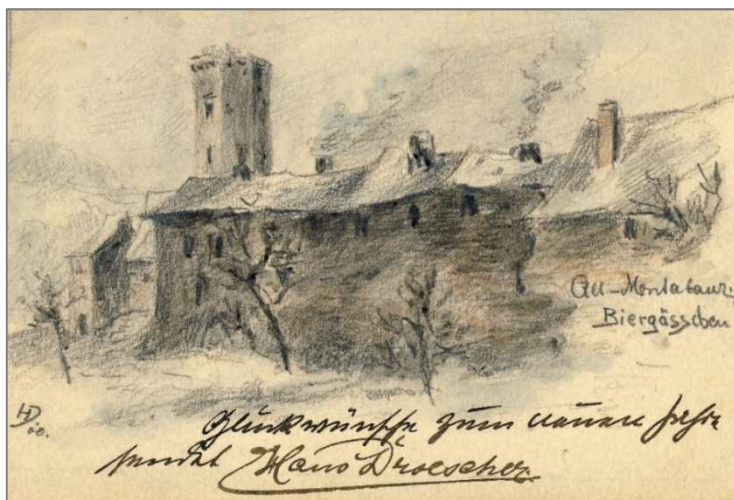 Alt-Montabaur:
Biergässchen
HD
00.
Glückwünsche zum neuen Jahre
sendet Hans Droescher